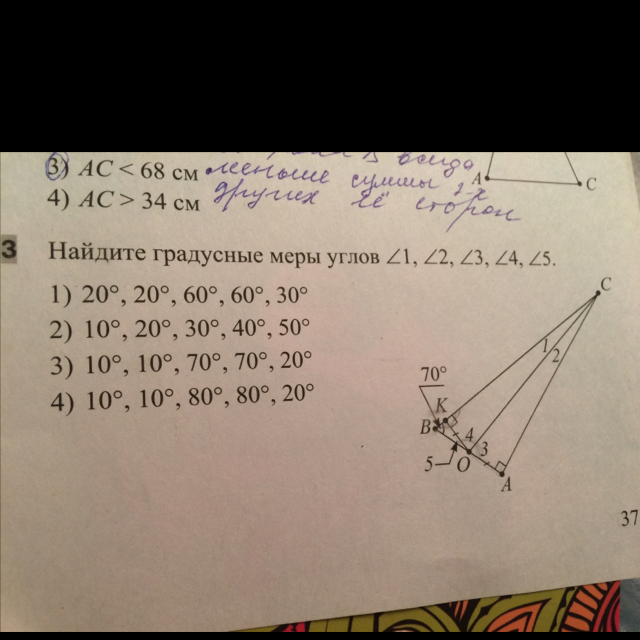 всегда
3) AC < 68 см меньше суммы 2-х
4) AC > 34 см других её сторон
A C
3 Найдите градусные меры углов ∠1, ∠2, ∠3, ∠4, ∠5.
1) 20°, 20°, 60°, 60°, 30°
2) 10°, 20°, 30°, 40°, 50°
3) 10°, 10°, 70°, 70°, 20°
4) 10°, 10°, 80°, 80°, 20°
C
1
2
70°
K
B 4
3
5 O
A
37